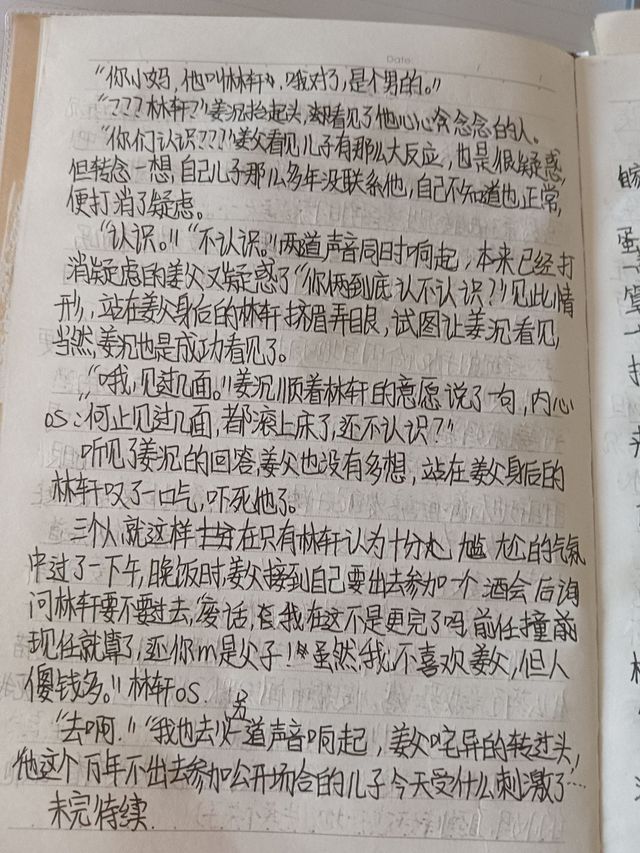 Date
"你小妈,他叫林轩,哦对了,是个男的。"
"???林轩?"姜沉抬起头,却看见了他心心念念的人。
"你们认识???"姜父看见儿子有那么大反应,也是很疑惑,
但转念一想,自己儿子那么多年没联系他,自己不知道也正常,
便打消了疑虑。
"认识。""不认识。"两道声音同时响起,本来已经打
消疑虑的姜父又疑惑了"你俩到底认不认识?"见此情
形,站在姜父身后的林轩挤眉弄眼,试图让姜沉看见,
当然,姜沉也是成功看见了。
"哦,见过几面。"姜沉顺着林轩的意愿说了一句,内心
os:何止见过几面,都滚上床了,还不认识?"
听见了姜沉的回答,姜父也没有多想,站在姜父身后的
林轩叹了一口气,吓死他了。
三个人就这样在只有林轩认为十分尴尬的气氛
中过了一下午,晚饭时,姜父接到自己要出去参加一个酒会后询
问林轩要不要过去,"废话,我在这不是更完了吗 前任撞
现任就算了,还你m是父子!虽然我不喜欢姜父,但人
傻钱多。"林轩os.
"去啊.""我也去"一道声音响起,姜父诧异的转过头,
他这个万年不出去参加公开场合的儿子今天受什么刺激了…
未完待续.